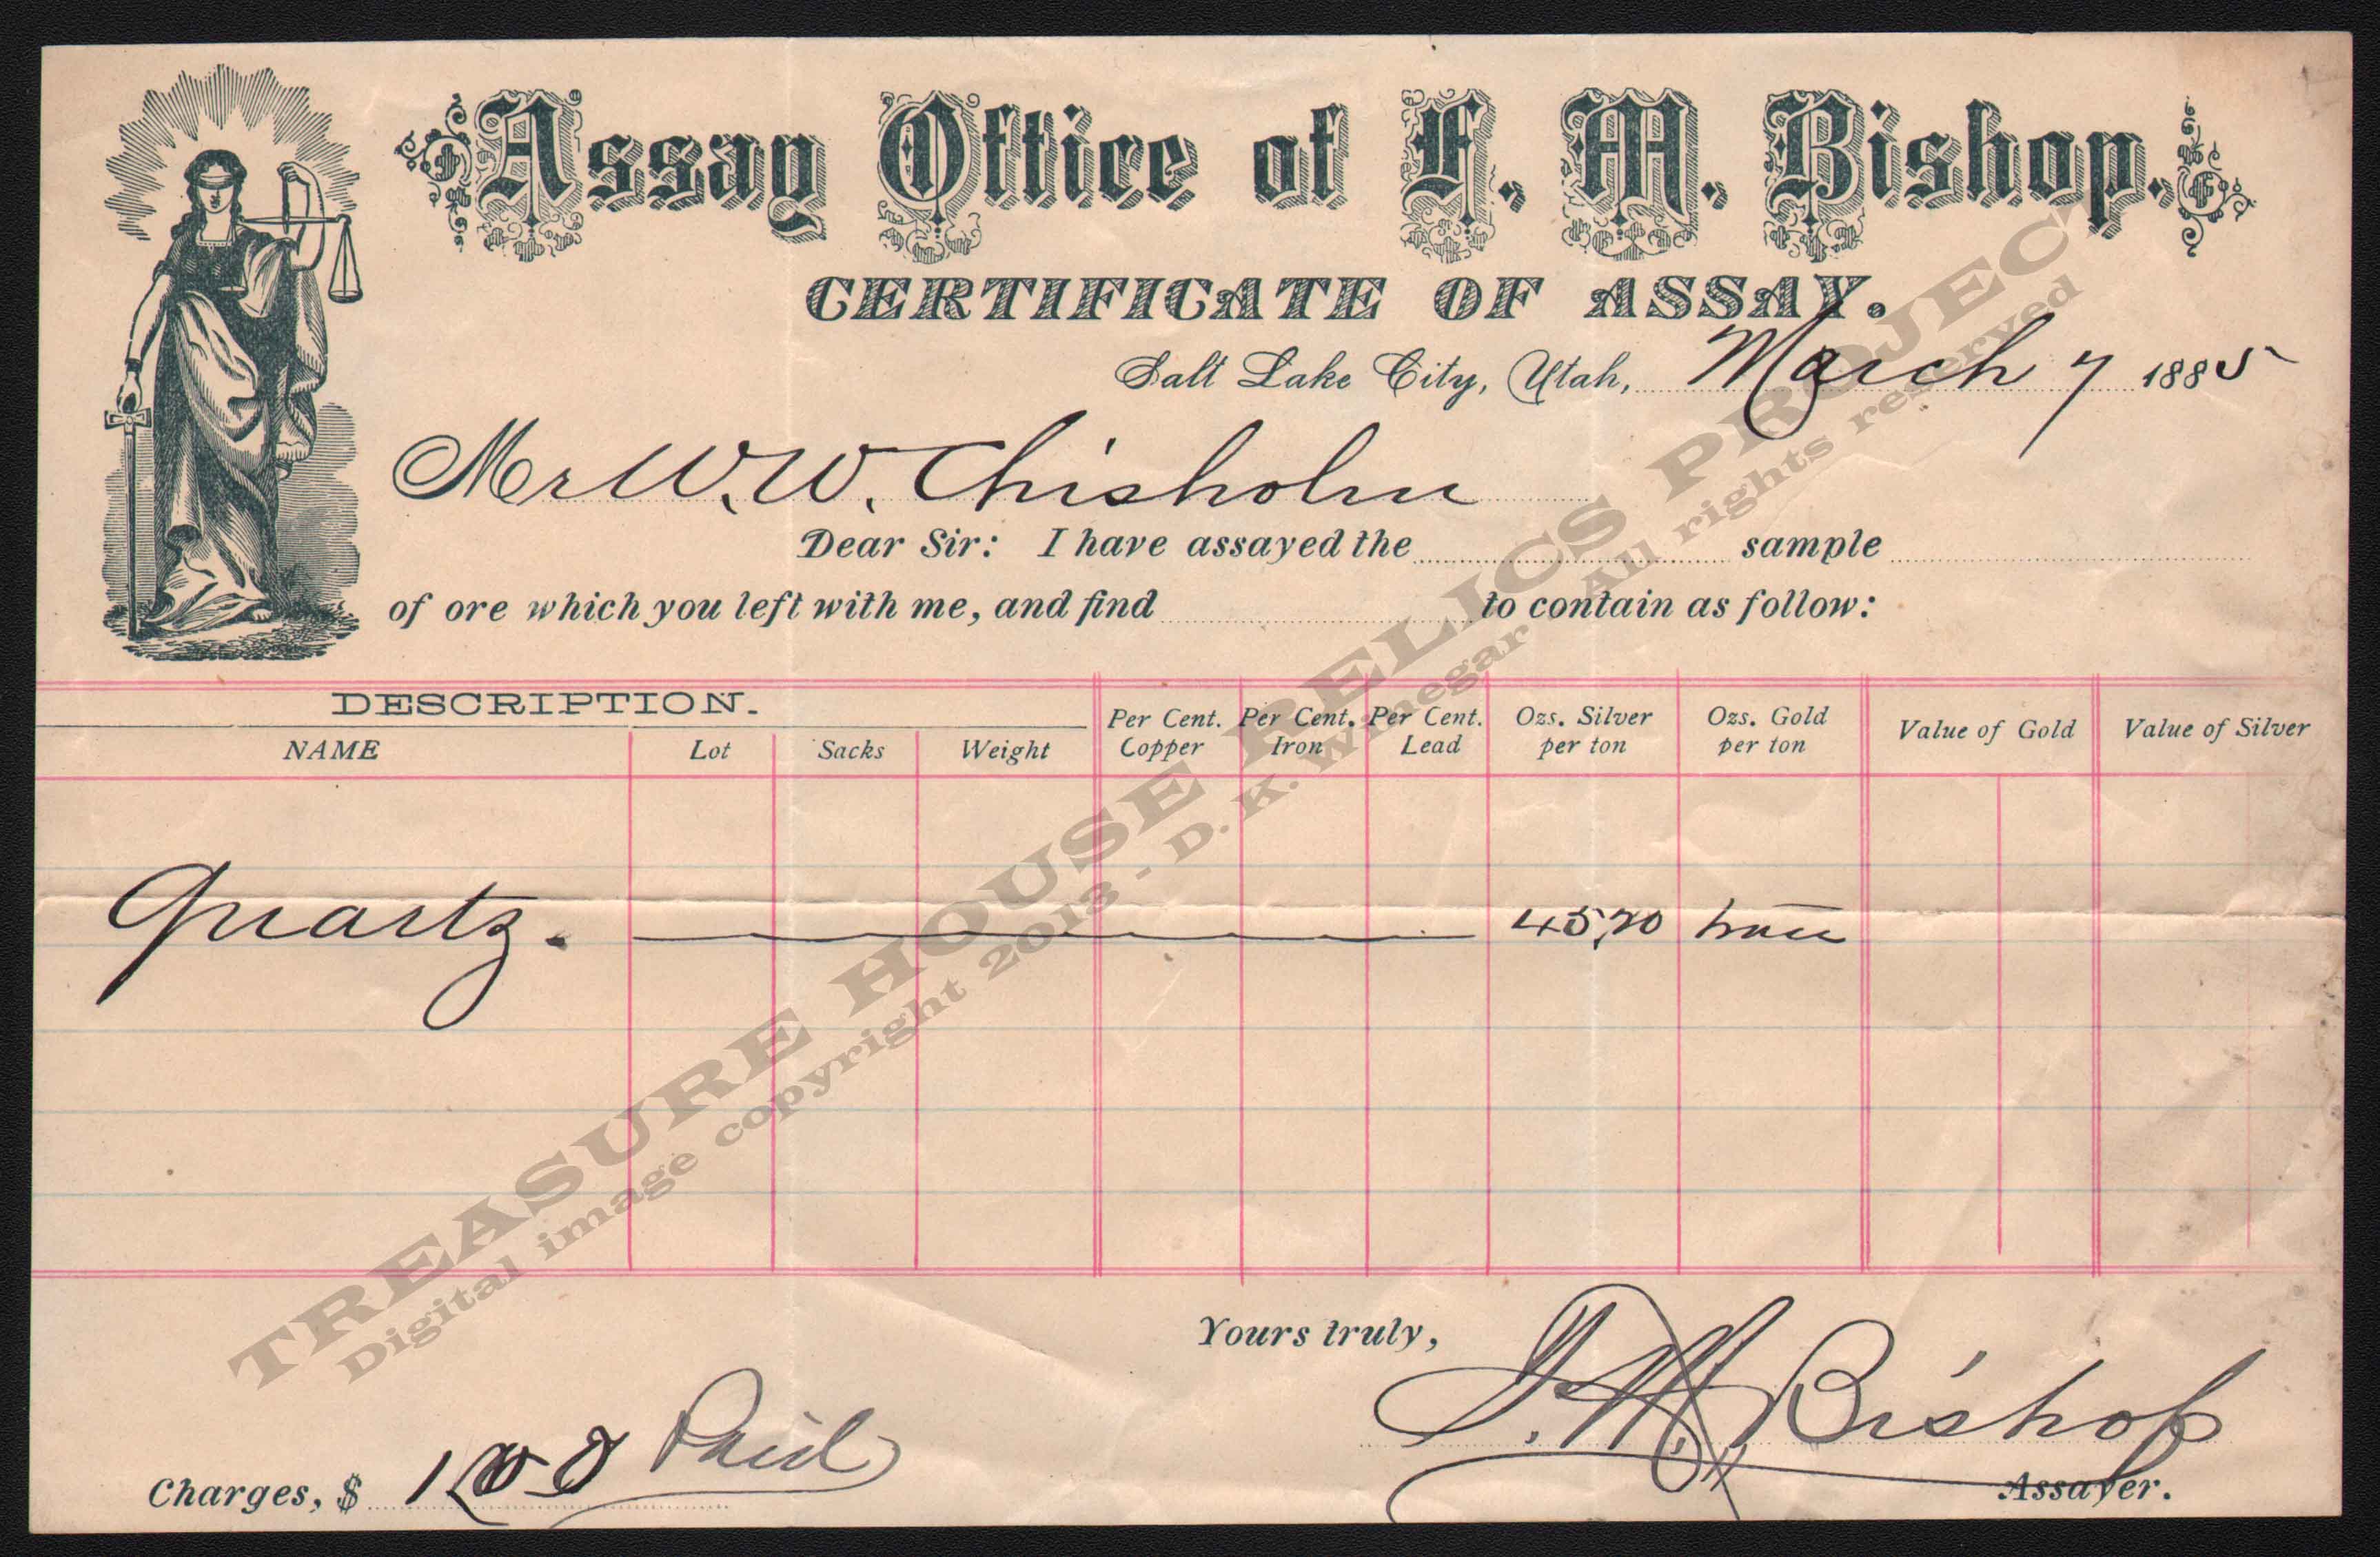 Assay Office of F. M. Bishop.
CERTIFICATE OF ASSAY.
Salt Lake City, Utah, March 7 1885
Mr W. W. Chisholm
Dear Sir: I have assayed the sample
of ore which you left with me, and find to contain as follow:
DESCRIPTION.
NAME Lot Sacks Weight Per Cent. Copper Per Cent. Iron Per Cent. Lead Ozs. Silver per ton Ozs. Gold per ton Value of Gold Value of Silver
Quartz. 45,20 trace
Yours truly,
F. M. Bishop
Assayer.
Charges, $ Paid
TREASURE HOUSE RELICS PROJECT
Digital image copyright 2013 - D. K. Winegar All rights reserved